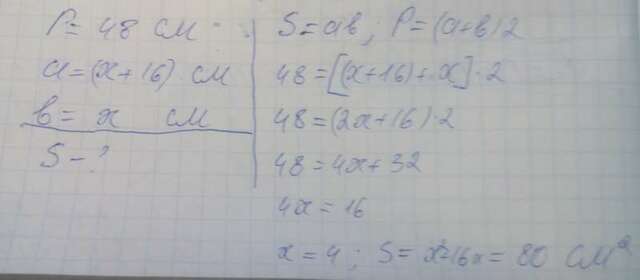 P = 48 см
a = (x+16) см
b = x см
S - ?
S = ab ; P = (a+b)2
48 = [(x+16)+x]·2
48 = (2x+16)·2
48 = 4x + 32
4x = 16
x = 4 ; S = x²+16x = 80 см²